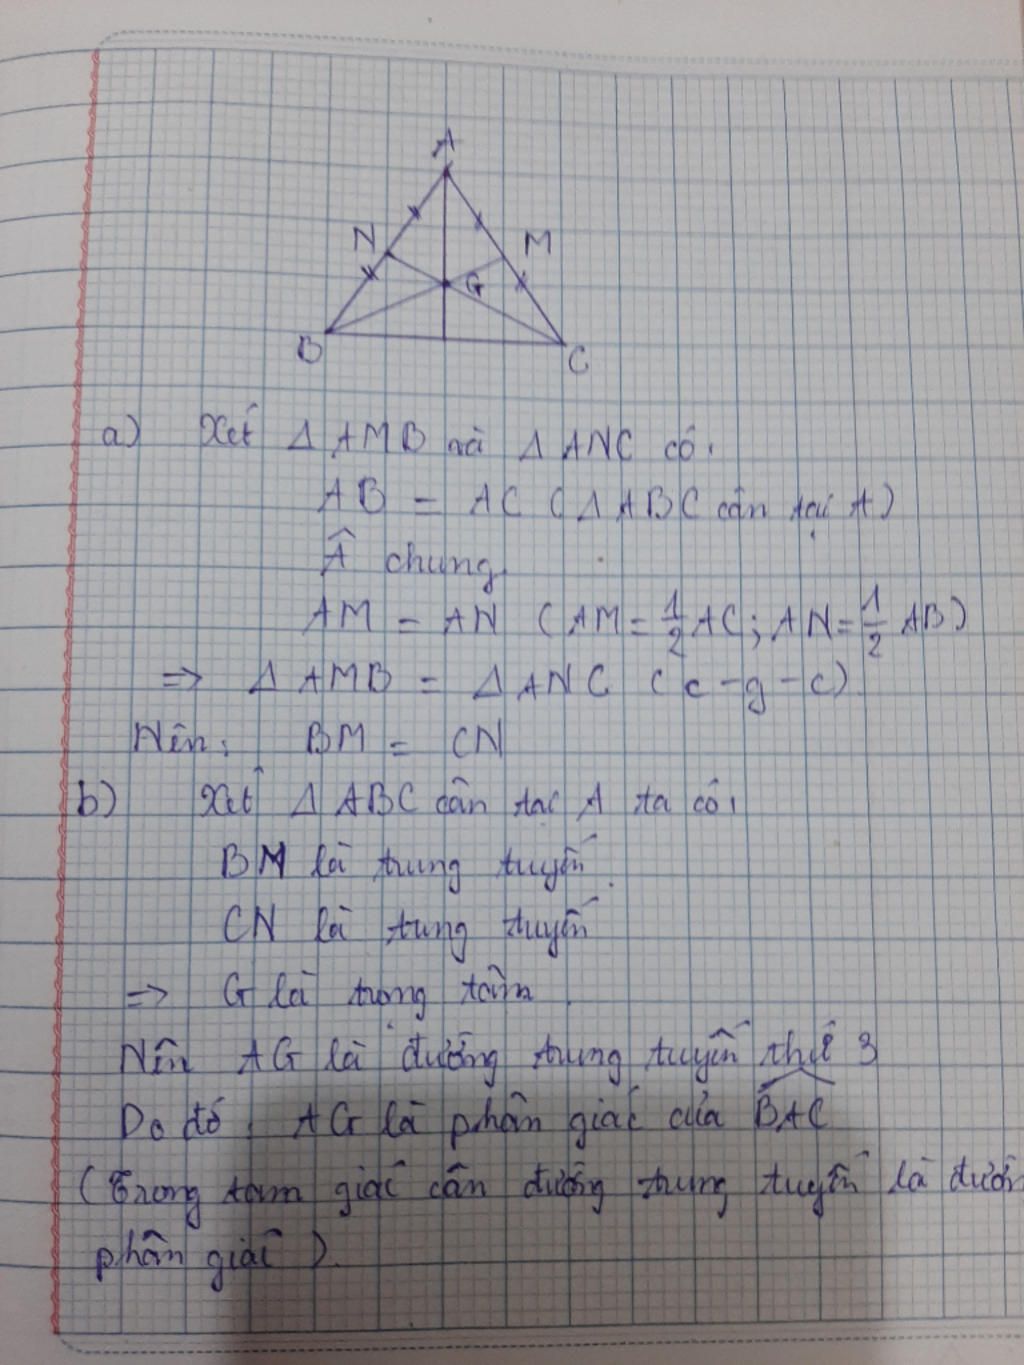 A
N
M
G
B
C
a) Xét Δ AMB và Δ ANC có:
AB = AC (Δ ABC cân tại A)
Â chung
AM = AN (AM = 1/2 AC; AN = 1/2 AB)
=> Δ AMB = Δ ANC (c-g-c)
Nên: BM = CN
b) Xét Δ ABC cân tại A ta có:
BM là trung tuyến
CN là trung tuyến
=> G là trọng tâm
Nên AG là đường trung tuyến thứ 3
Do đó: AG là phân giác của \widehat{BAC}
(Trong tam giác cân đường trung tuyến là đườn
phân giác).